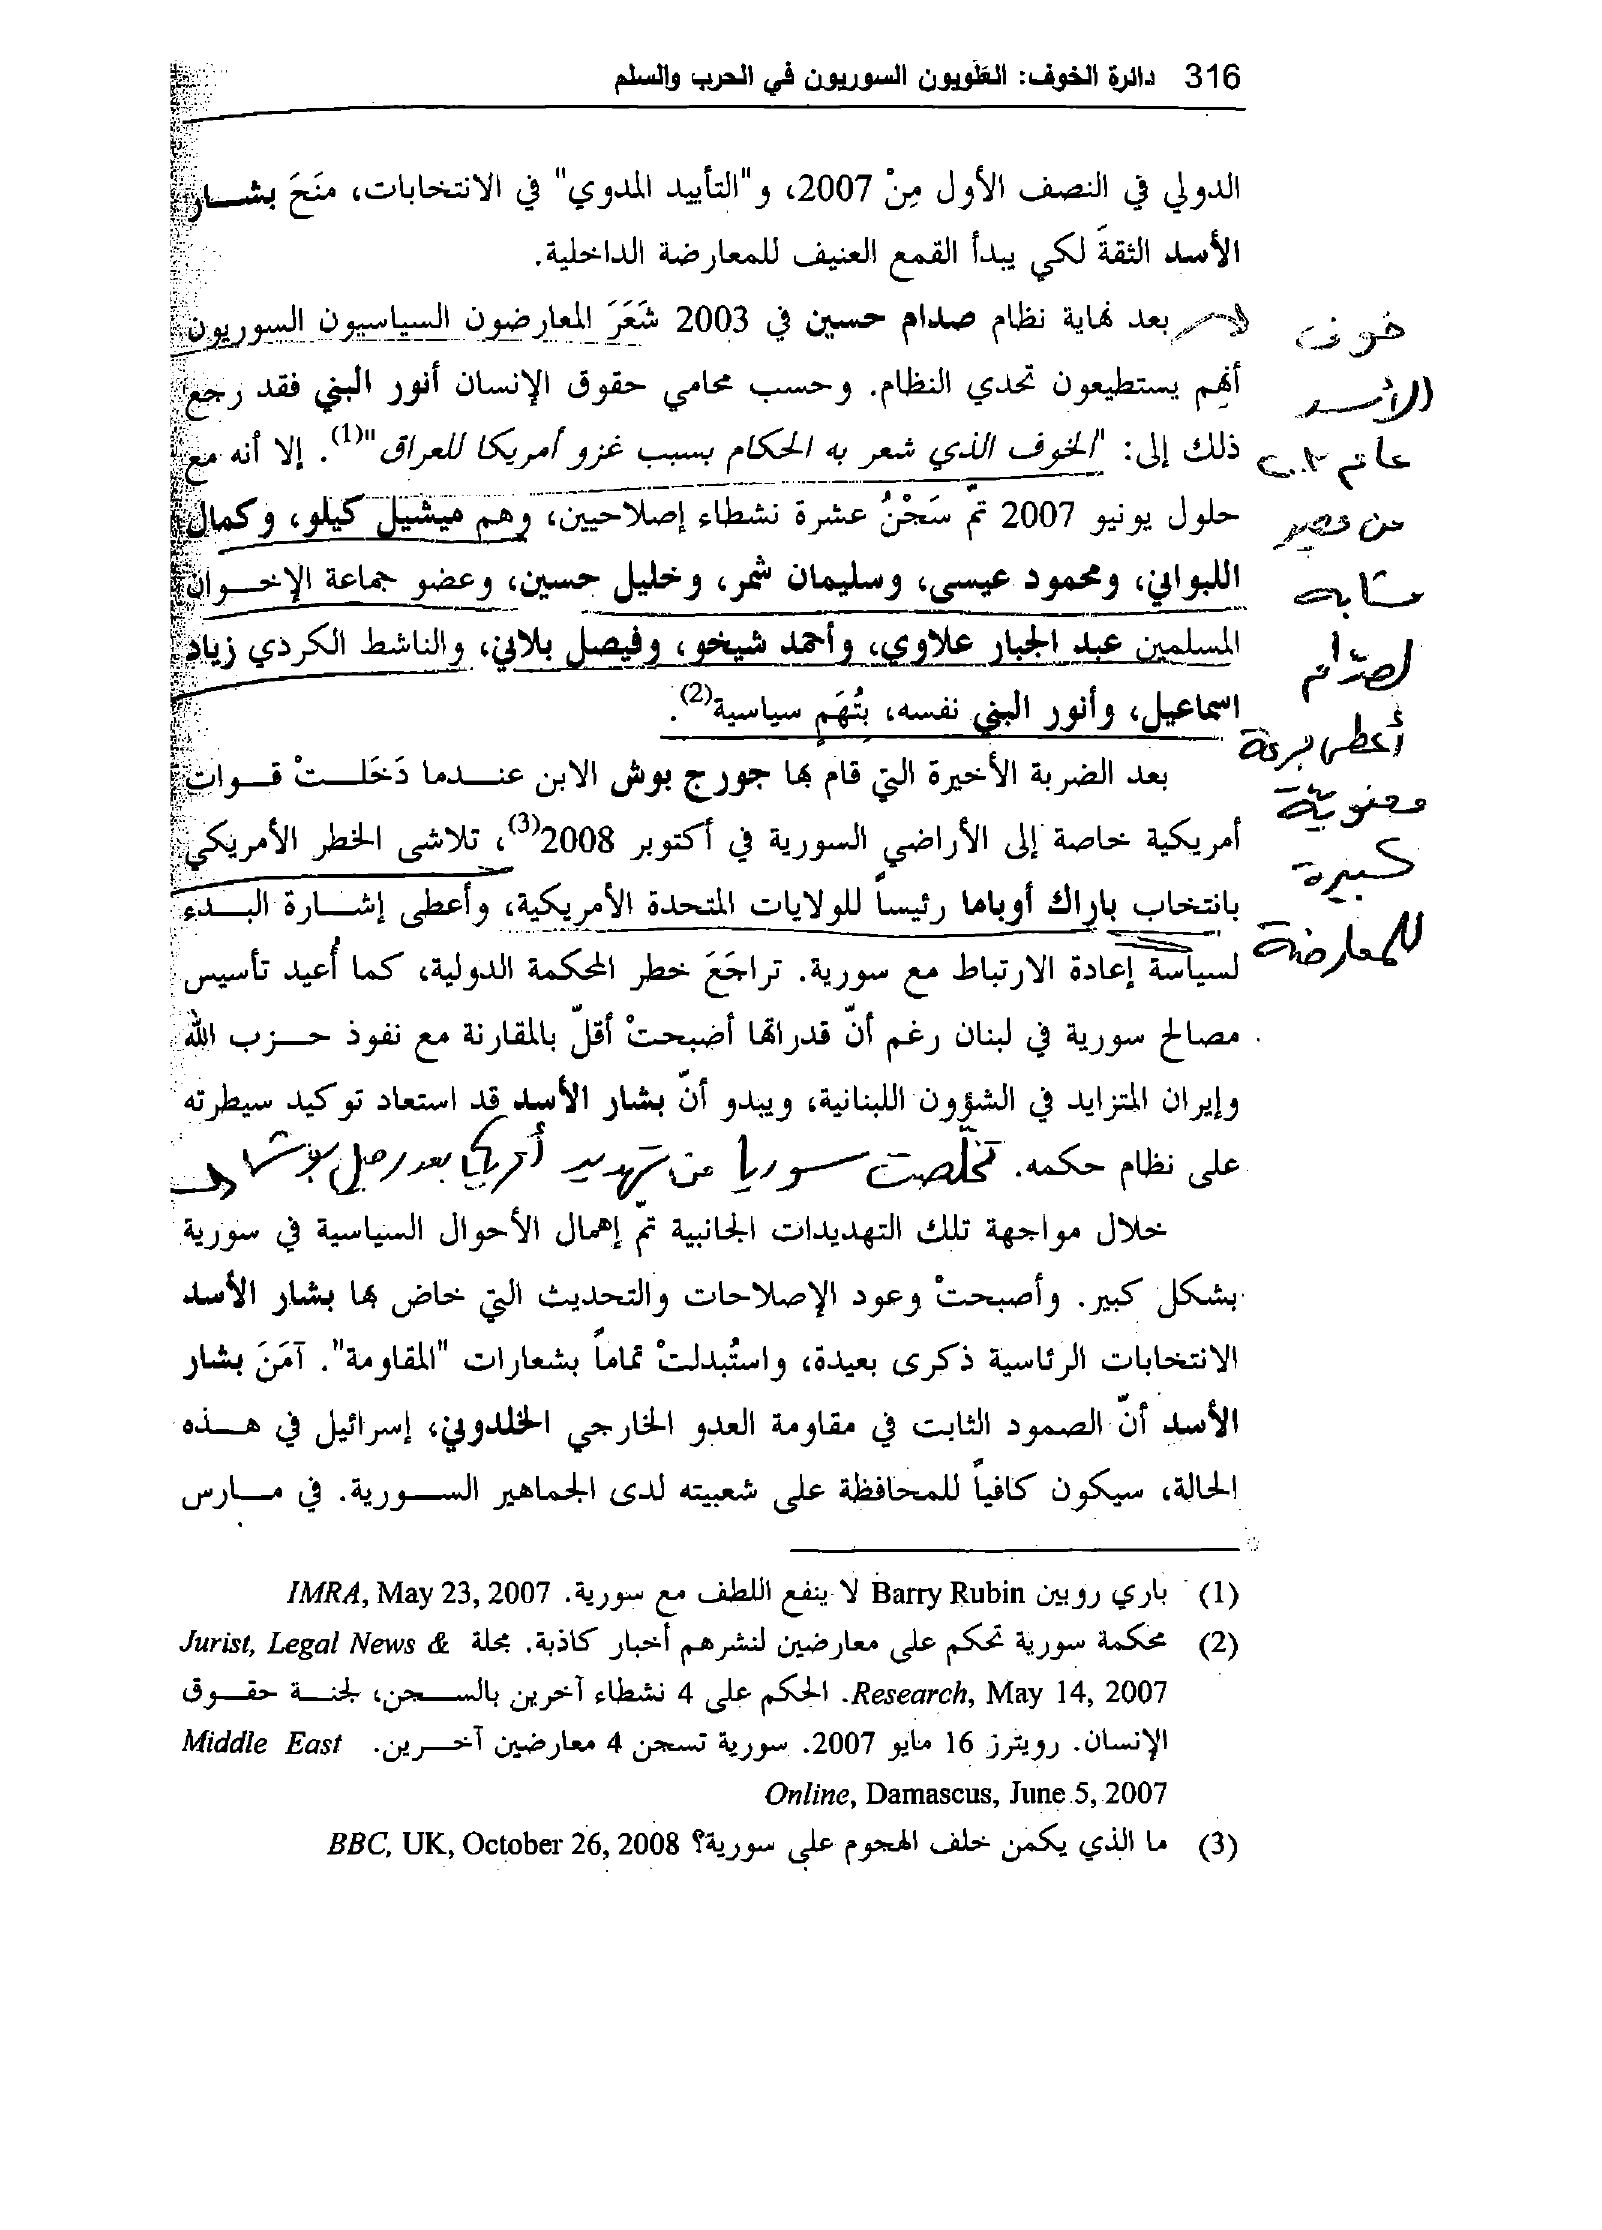 316 دائرة الخوف: العَلَويون السوريون في الحرب والسلم
الدولي في النصف الأول مِنْ 2007، و"التأييد المدوي" في الانتخابات، منَحَ بشـــار
الأسد الثقةَ لكي يبدأ القمع العنيف للمعارضة الداخلية.
بعد نهاية نظام صدام حسين في 2003 شَعَرَ المعارضون السياسيون السوريون
أنهم يستطيعون تحدي النظام. وحسب محامي حقوق الإنسان أنور البني فقد رجع
ذلك إلى: "الخوف الذي شعر به الحكام بسبب غزو أمريكا للعراق"(1). إلا أنه مع
حلول يونيو 2007 تمّ سَجْنُ عشرة نشطاء إصلاحيين، وهم ميشيل كيلو، وكمال
اللبواني، ومحمود عيسى، وسليمان شمر، وخليل حسين، وعضو جماعة الإخـــوان
المسلمين عبد الجبار علاوي، وأحمد شيخو، وفيصل بلاني، والناشط الكردي زياد
اسماعيل، وأنور البني نفسه، بِتُهَمٍ سياسية(2).
بعد الضربة الأخيرة التي قام بها جورج بوش الابن عنـــدما دَخَلـــتْ قـــوات
أمريكية خاصة إلى الأراضي السورية في أكتوبر 2008(3)، تلاشى الخطر الأمريكي
بانتخاب باراك أوباما رئيساً للولايات المتحدة الأمريكية، وأعطى إشـــارة البـــدء
لسياسة إعادة الارتباط مع سورية. تراجَعَ خطر المحكمة الدولية، كما أُعيد تأسيس
مصالح سورية في لبنان رغم أنّ قدراتها أضبحتْ أقلّ بالمقارنة مع نفوذ حـــزب الله
وإيران المتزايد في الشؤون اللبنانية، ويبدو أنّ بشار الأسد قد استعاد توكيد سيطرته
على نظام حكمه. تخلّصت سوريا من تهديد أمريكا بعد رحيل بوش
خلال مواجهة تلك التهديدات الجانبية تمّ إهمال الأحوال السياسية في سورية
بشكل كبير. وأصبحتْ وعود الإصلاحات والتحديث التي خاض بها بشار الأسد
الانتخابات الرئاسية ذكرى بعيدة، واستُبدلتْ تماماً بشعارات "المقاومة". آمَنَ بشار
الأسد أنّ الصمود الثابت في مقاومة العدو الخارجي الخلدوني، إسرائيل في هـــذه
الحالة، سيكون كافياً للمحافظة على شعبيته لدى الجماهير الســـورية. في مـــارس
خوف
الأسد
عام ٢٠٠٣
من مصير
مشابه
لصدّام
أعطى جرعة
معنويّة
كبيرة
للمعارضة
(1) باري روبين Barry Rubin لا ينفع اللطف مع سورية. IMRA, May 23, 2007
(2) محكمة سورية تحكم على معارضين لنشرهم أخبار كاذبة. مجلة Jurist, Legal News &
Research, May 14, 2007. الحكم على 4 نشطاء آخرين بالســـجن، لجنـــة حقـــوق
الإنسان. رويترز 16 مايو 2007. سورية تسجن 4 معارضين آخـــرين. Middle East
Online, Damascus, June 5, 2007
(3) ما الذي يكمن خلف الهجوم على سورية؟ BBC, UK, October 26, 2008